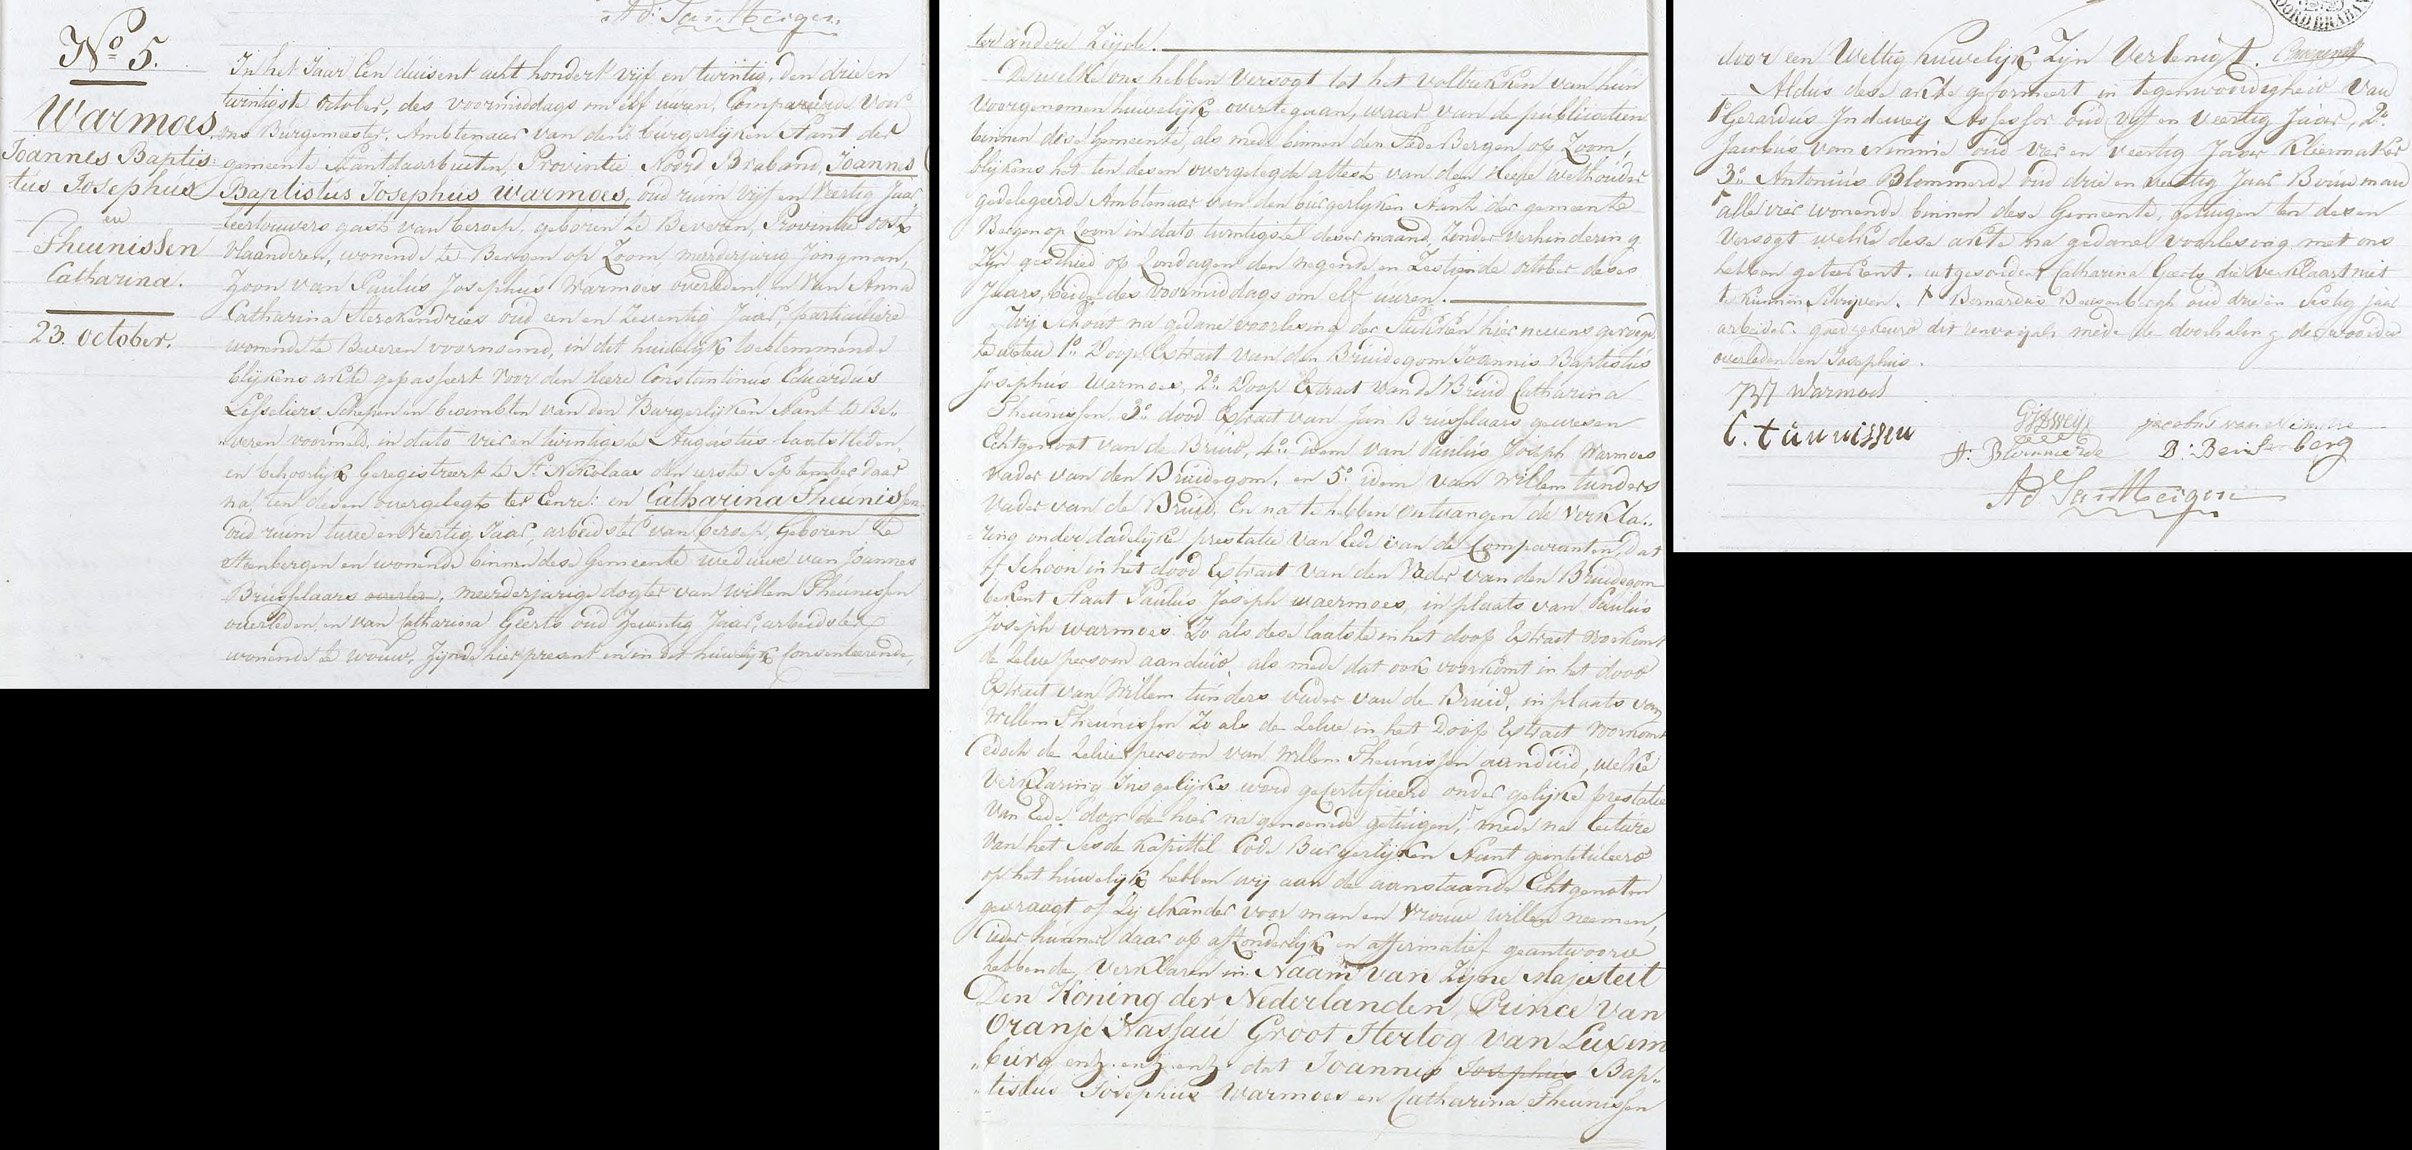 Ad. Van Mergen
N.o 5.
Warmoes
Joannes Baptis:
tus Josephus
en
Theunissen
Catharina.
23. october.
In het Jaar Een duisent acht hondert vijf en twintig, den drie en
twintigste October, des voormiddags om elf uuren, Compareerde voor
ons Burgemeester, Ambtenaar van den burgerlijken Stant der
gemeente Standdaarbuiten, Provintie Noord Braband, Joannes
Baptistus Josephus Warmoes, oud ruim vijf en Veertig Jaar
Leertouwers gast van beroep, geboren te Beveren, Provintie oost
vlaanderen, wonende te Bergen op Zoom, meerderjarig Jongman,
Zoon van Paulus Josephus Warmoes overleden en Van Anna
Catharina Sterckendries oud een en Zeventig Jaar, particuliere
wonende te Beveren voornoemd, in dit huwelijk toestemmende
blijkens akte gepasseert voor den Heere Constantinus Eduardus
Lesseliers Schepen en beambten van den Burgerlijken Stant te Be:
veren voormeld, in dato vier en twintigste Augustus laatstleden,
en behoorlijk Geregistreert te St. Nikolaas den eerste September daar
na, ten desen overgelegt ter Eenre: en Catharina Theunissen
oud ruim twee en Veertig Jaar, arbeidster van beroep, geboren te
Steenbergen en wonende binnen dese Gemeente weduwe van Joannes
Brusselaars overlee, meerderjarige dogter van Willem Theunissen
overleden en van Catharina Geerts oud Zeventig Jaar, arbeidster
wonende te wouw, Zijnde hier present en in dit huwelijk Consenteerende,
ter andere Zeyde.
Dewelke ons hebben Versogt tot het voltrekken van hun
Voorgenomen huwelijk overtegaan, waar van de publicatien
binnen dese Gemeente, als mede binnen den Stede Bergen op Zoom,
blijkens het ten desen overgelegde attest van den Heere Wethouder
gedelegeerde Ambtenaar van den burgerlijken Stant der gemeente
Bergen op Zoom in dato twintigste deser maand, Zonder Verhindering
Zijn geschied op Zondagen den negende en Zestiende october deses
Jaars, beide des Voormiddags om elf uuren.
Wij Schout na gedane voorlesing der Stukken hier nevens gevoegd
te weten 1.o Doop Extract van den Bruidegom Joannis Baptistus
Josephus Warmoes, 2.o Doop Extract van de Bruid Catharina
Theunissen 3.o dood Extract van Jan Brusselaars gewesen
Echtgenoot van de Bruid, 4.o idem van Paulus Joseph Warmoes
vader van den Bruidegom, en 5.o idem van Willem tunders
Vader van de Bruid, En na te hebben ontvangen de Verkla..
ring onder dadelijke prestatie van Eed van de Comparanten, dat
of Schoon in het dood Extract van den Vader van den Bruidegom
bekent Staat Paulus Joseph waermoes, in plaats van Paulus
Joseph warmoes Zo als dese laatste in het doop Extract voorkomt
de Zelve persoon aanduid, als mede dat ook voorkomt in het dood
Extract van Willem tunders vader van de Bruid, in plaats van
Willem Theunissen Zo als de Zelve in het Doop Extract voorkomt
edoch de Zelve persoon van Willem Theunissen aanduid, welke
Verklaring Insgelijks word gecertifieerd onder gelijke prestatie
van Eed door de hier na genoemde getuigen, mede na lecture
van het sesde Kapittel Code Burgerlijken Stant geintituleerd
op het huwelijk hebben wij aan de aanstaande Echtgenoten
gevraagt, of Zij elkander voor man en Vrouw willen neemen,
ieder hunner daar op afzonderlijk en affirmatief geantwoord
hebbende, Verklaren in Naam van Zijne Majesteit
Den Koning der Nederlanden, Prince Van
Oranje Nassau Groot Hertog van Luxem
burg enz. enz. enz. dat Joannis Josephus Bap..
tistus Josephus Warmoes en Catharina Theunissen
door een Wettig huwelijk Zijn Vereenigt.
Aldus dese akte geformeert in tegenwoordigheid Van
1.o Gerardus Indeweg Assessor oud vijf en veertig Jaar, 2.o
Jacobus van oud vier en veertig Jaar Kleermaker
3.o Antonius Blommerde oud drie en veertig Jaar Bouwman
alle vier wonende binnen dese Gemeente, getuigen ten desen
Versogt welke dese akte na gedane voorlesing met ons
hebben geteekent. uitgesondert Catharina Geerts die verklaart niet
te kunnen Schrijven. Bernardus oud drie en Sestig jaar
arbeider. goedgekeurd dit renvoij als mede de doorhaling der woorden
overleden en Josephus.
Warmoes
C. tünnissen
jacobus van
A: Blommerde
Ad Van Mergen